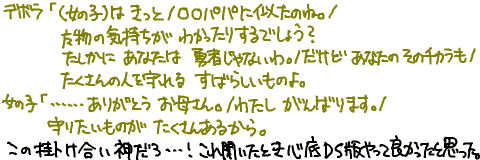 デボラ「(女の子)は きっと/〇〇パパに似たのね。/
友物の気持ちが わかったりするでしょう？
たしかに あなたは 勇者じゃないわ。/だけど あなたの そのチカラも/
たくさんの人を守れる すばらしいものよ。
女の子「……ありがとう お母さん。/わたし がんばります。/
守りたいものが たくさんあるから。
この掛け合い神だろ…！これ聞いたとき心底DS版やって良かったと思った。